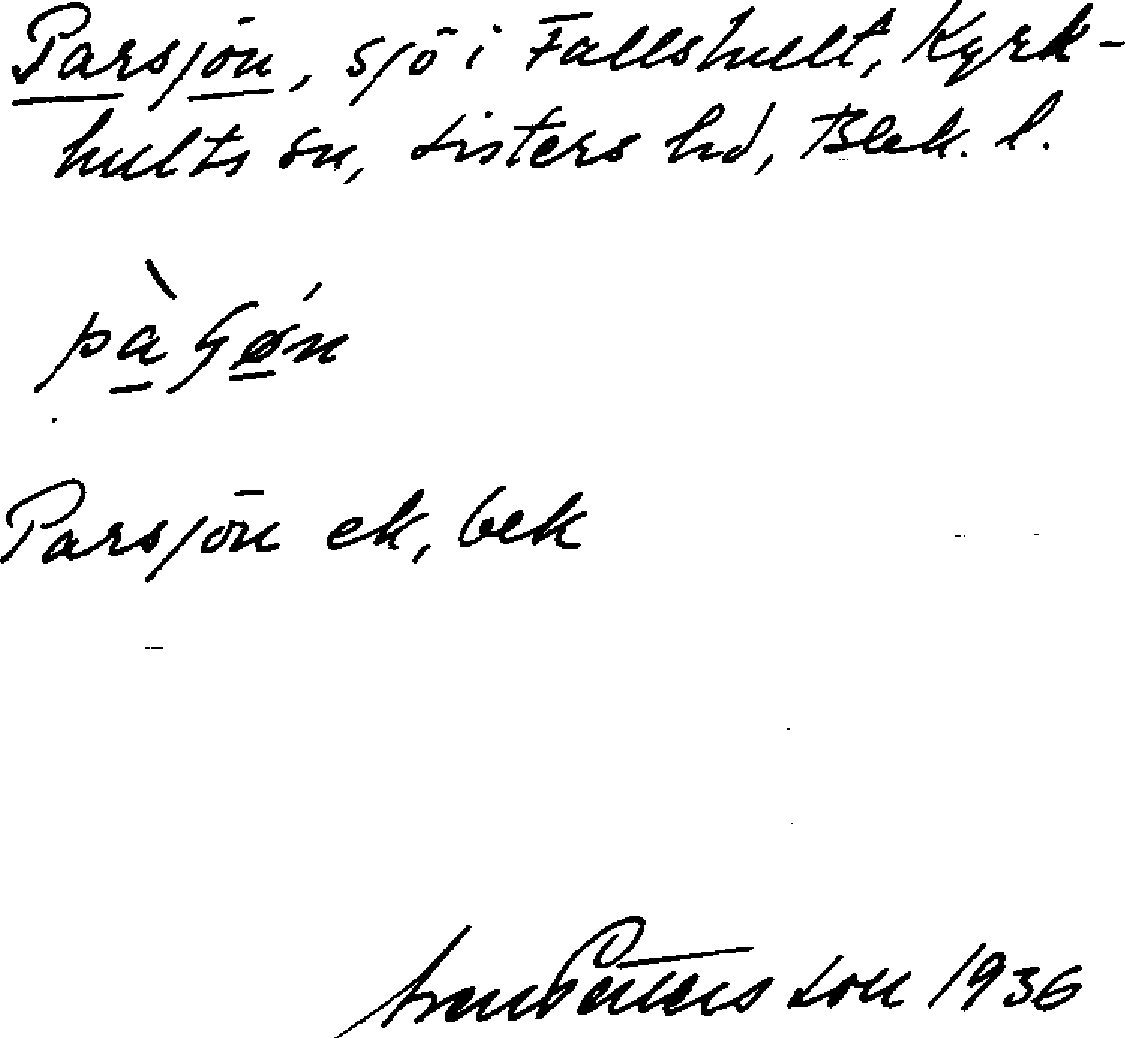 Parsjön, sjö i Fallshult, Kyrk-
hults sn, Listers hd, Blek. l.
Parsjön ek, bek
Pettersson 1936